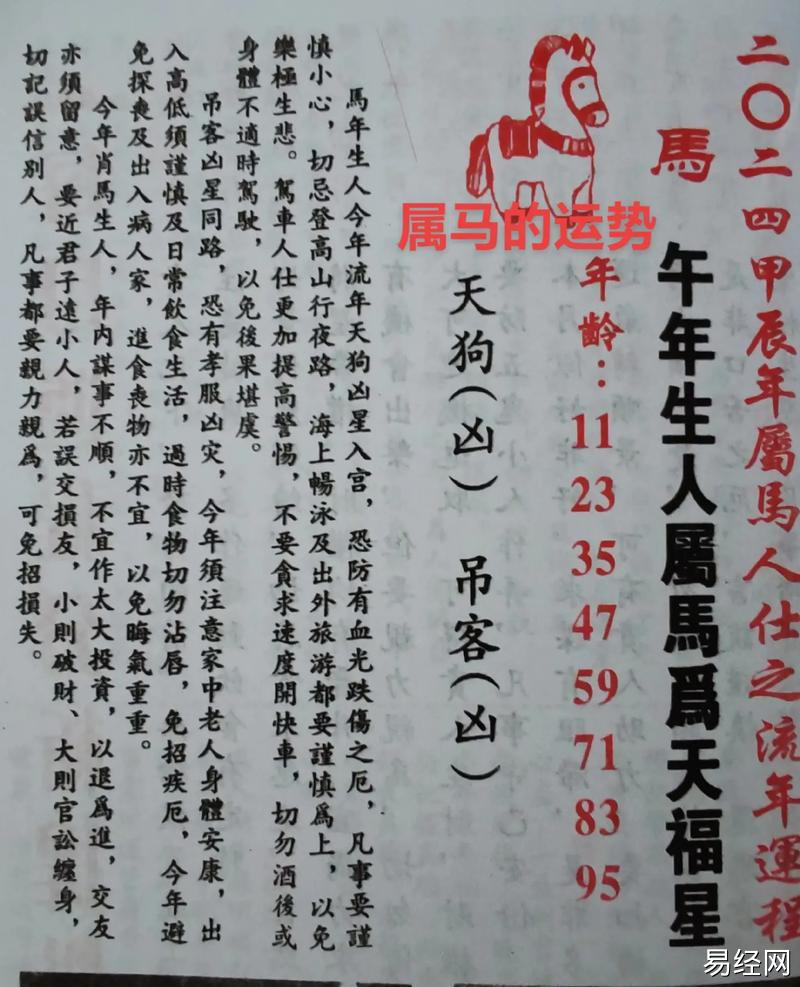 二〇二四甲辰年屬馬人仕之流年運程
馬
午年生人屬馬爲天福星
属马的运势
年齡：11 23 35 47 59 71 83 95
天狗（凶） 吊客（凶）
馬年生人今年流年天狗凶星入宫，恐防有血光跌傷之厄，凡事要謹
慎小心，切忌登高山行夜路，海上暢泳及出外旅游都要謹慎爲上，以免
樂極生悲。駕車人仕更加提高警惕，不要貪求速度開快車，切勿酒後或
身體不適時駕駛，以免後果堪虞。
吊客凶星同路，恐有孝服凶灾，今年須注意家中老人身體安康，出
入高低須謹慎及日常飲食生活，過時食物切勿沾唇，免招疾厄，今年避
免探喪及出入病人家，進食喪物亦不宜，以免晦氣重重。
今年肖馬生人，年内謀事不順，不宜作太大投資，以退爲進，交友
亦須留意，要近君子遠小人，若誤交損友，小則破財、大則官訟纏身，
切記誤信别人，凡事都要親力親爲，可免招損失。
易经网